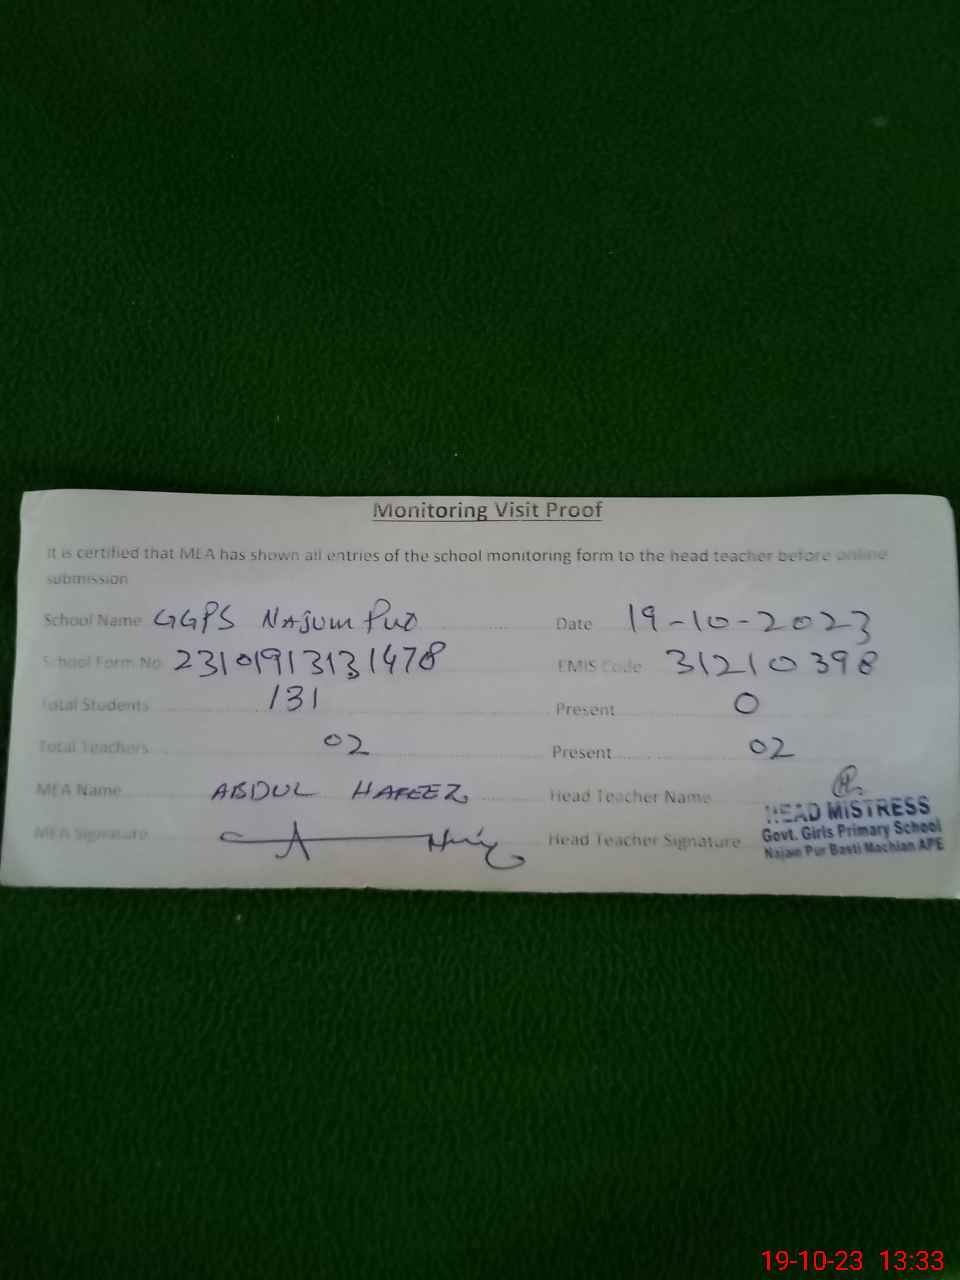 Monitoring Visit Proof
It is certified that MEA has shown all entries of the school monitoring form to the head teacher before online
submission
School Name GGPS Najum Pur Date 19-10-2023
School Form No 23101913131478 EMIS Code 31210398
Total Students 131 Present 0
Total Teachers 02 Present 02
MEA Name ABDUL HAFEEZ Head Teacher Name
MEA Signature Head Teacher Signature
HEAD MISTRESS
Govt. Girls Primary School
Najam Pur Basti Machian APE
19-10-23 13:33